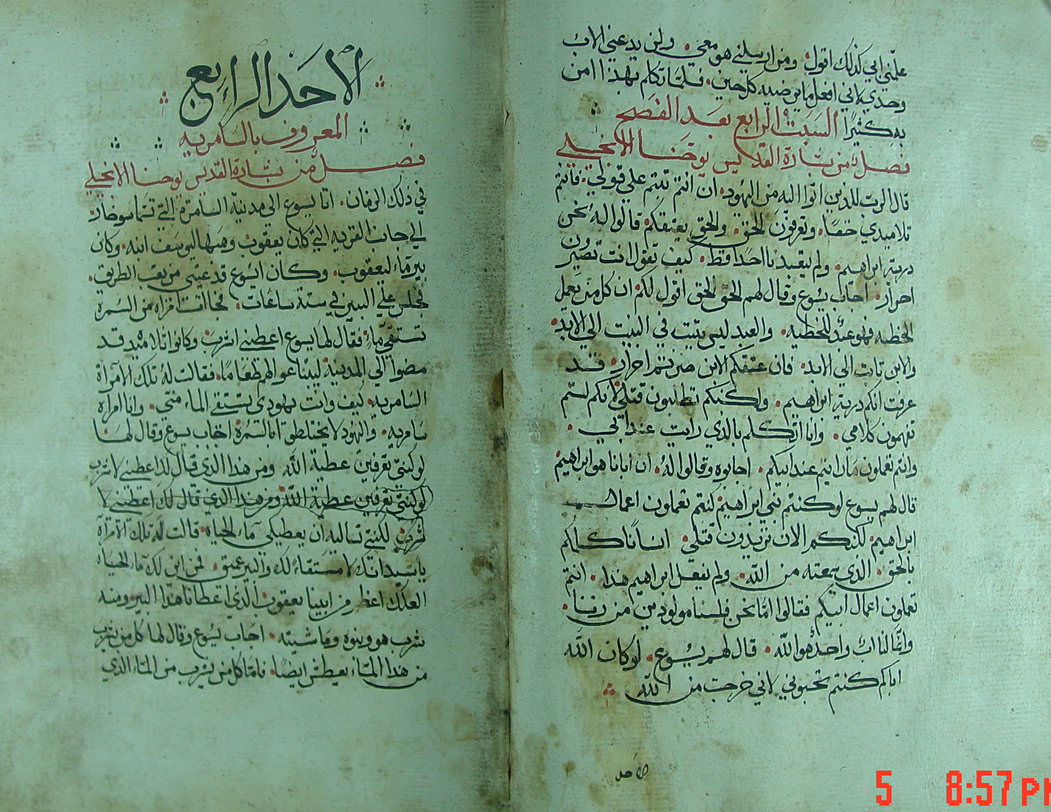 علمني ابي كذلك اقول ومن ارسلني هو معي ولن يدعني الاب
وحدي لاني افعل ما يرضيه كل حين فلما تكلم بهذا امن
به كثيرا السبت الرابع بعد الفصح
فصل من بشارة القديس يوحنا الانجيلي
قال الرب للذين اتوا اليه من اليهود ان انتم ثبتم علي قولي فانتم
تلاميذي حقا وتعرفون الحق والحق يعتقكم قالوا له نحن
درية ابراهيم ولم يتعبد نا احد قط كيف تقول انت تصيرون
احرار اجاب يسوع وقال لهم الحق الحق اقول لكم ان كل من يعمل
الخطيه فهو عبد للخطيه والعبد ليس يثبت في البيت الي الابد
والابن ثابت الي الابد فان عتقكم الابن صرتم احرار قد
عرفت انكم درية ابراهيم ولكنكم تطلبون قتلي لانكم لستم
تفهمون كلامي وانا اتكلم بالذي رايت عند ابي
وانتم تعملون ما رايتم عند ابيكم اجابوه وقالوا له ان ابانا هو ابراهيم
قال لهم يسوع لو كنتم بني ابراهيم لكنتم تعملون اعمال
ابراهيم لكنكم الان تريدون قتلي انسانا كلمكم
بالحق الذي سمعته من الله ولم يفعل ابراهيم هذا انتم
تعملون اعمال ابيكم فقالوا اما نحن فلسنا مولودين من زنا
وانما لنا اب واحد هو الله قال لهم يسوع لو كان الله
اباكم كنتم تحبوني لاني خرجت من الله
الاحد
الاحد الرابع
المعروف بالسامريه
فصل من بشارة القديس يوحنا الانجيلي
في ذلك الزمان اتا يسوع الي مدينة السامرة التي تسما سوخار
الي جانب القريه التي كان يعقوب وهبها ليوسف ابنه وكان
بير ماء ليعقوب وكان ايسوع قد عيي من تعب الطريق
فجلس علي البير في ستة ساعات فجات امراه من السمرة
تستقي ماء فقال لها يسوع اعطيني اشرب وكانوا تلاميذه قد
مضوا الي المدينة ليبتاعوا لهم طعاما فقالت له تلك الامرأة
السامرية كيف وانت يهودي تستقي الماء مني وانا امراه
سامرية واليهود لا يختلطون اتا السمرة اجاب يسوع وقال لها
لو كنتي تعرفين عطية الله ومن هذا الذي قال لك اعطيني لاشرب
لو كنتي تعرفين عطية الله ومن هذا الذي قال لك اعطيني لا
شرب لكنتي تساليه ان يعطيكي ماء الحياه قالت له تلك الامراة
يا سيد انك لا مستقاء لك والبير عميق فمن اين لك ماء الحياة
العلك اعظم من ابينا يعقوب الذي اعطانا هذا البير ومنه
شرب هو وبنوه وماشيته اجاب يسوع وقال لها كل من يشرب
من هذا الماء يعطش ايضا فاما كل من يشرب من الماء الذي
5 8:57 PM